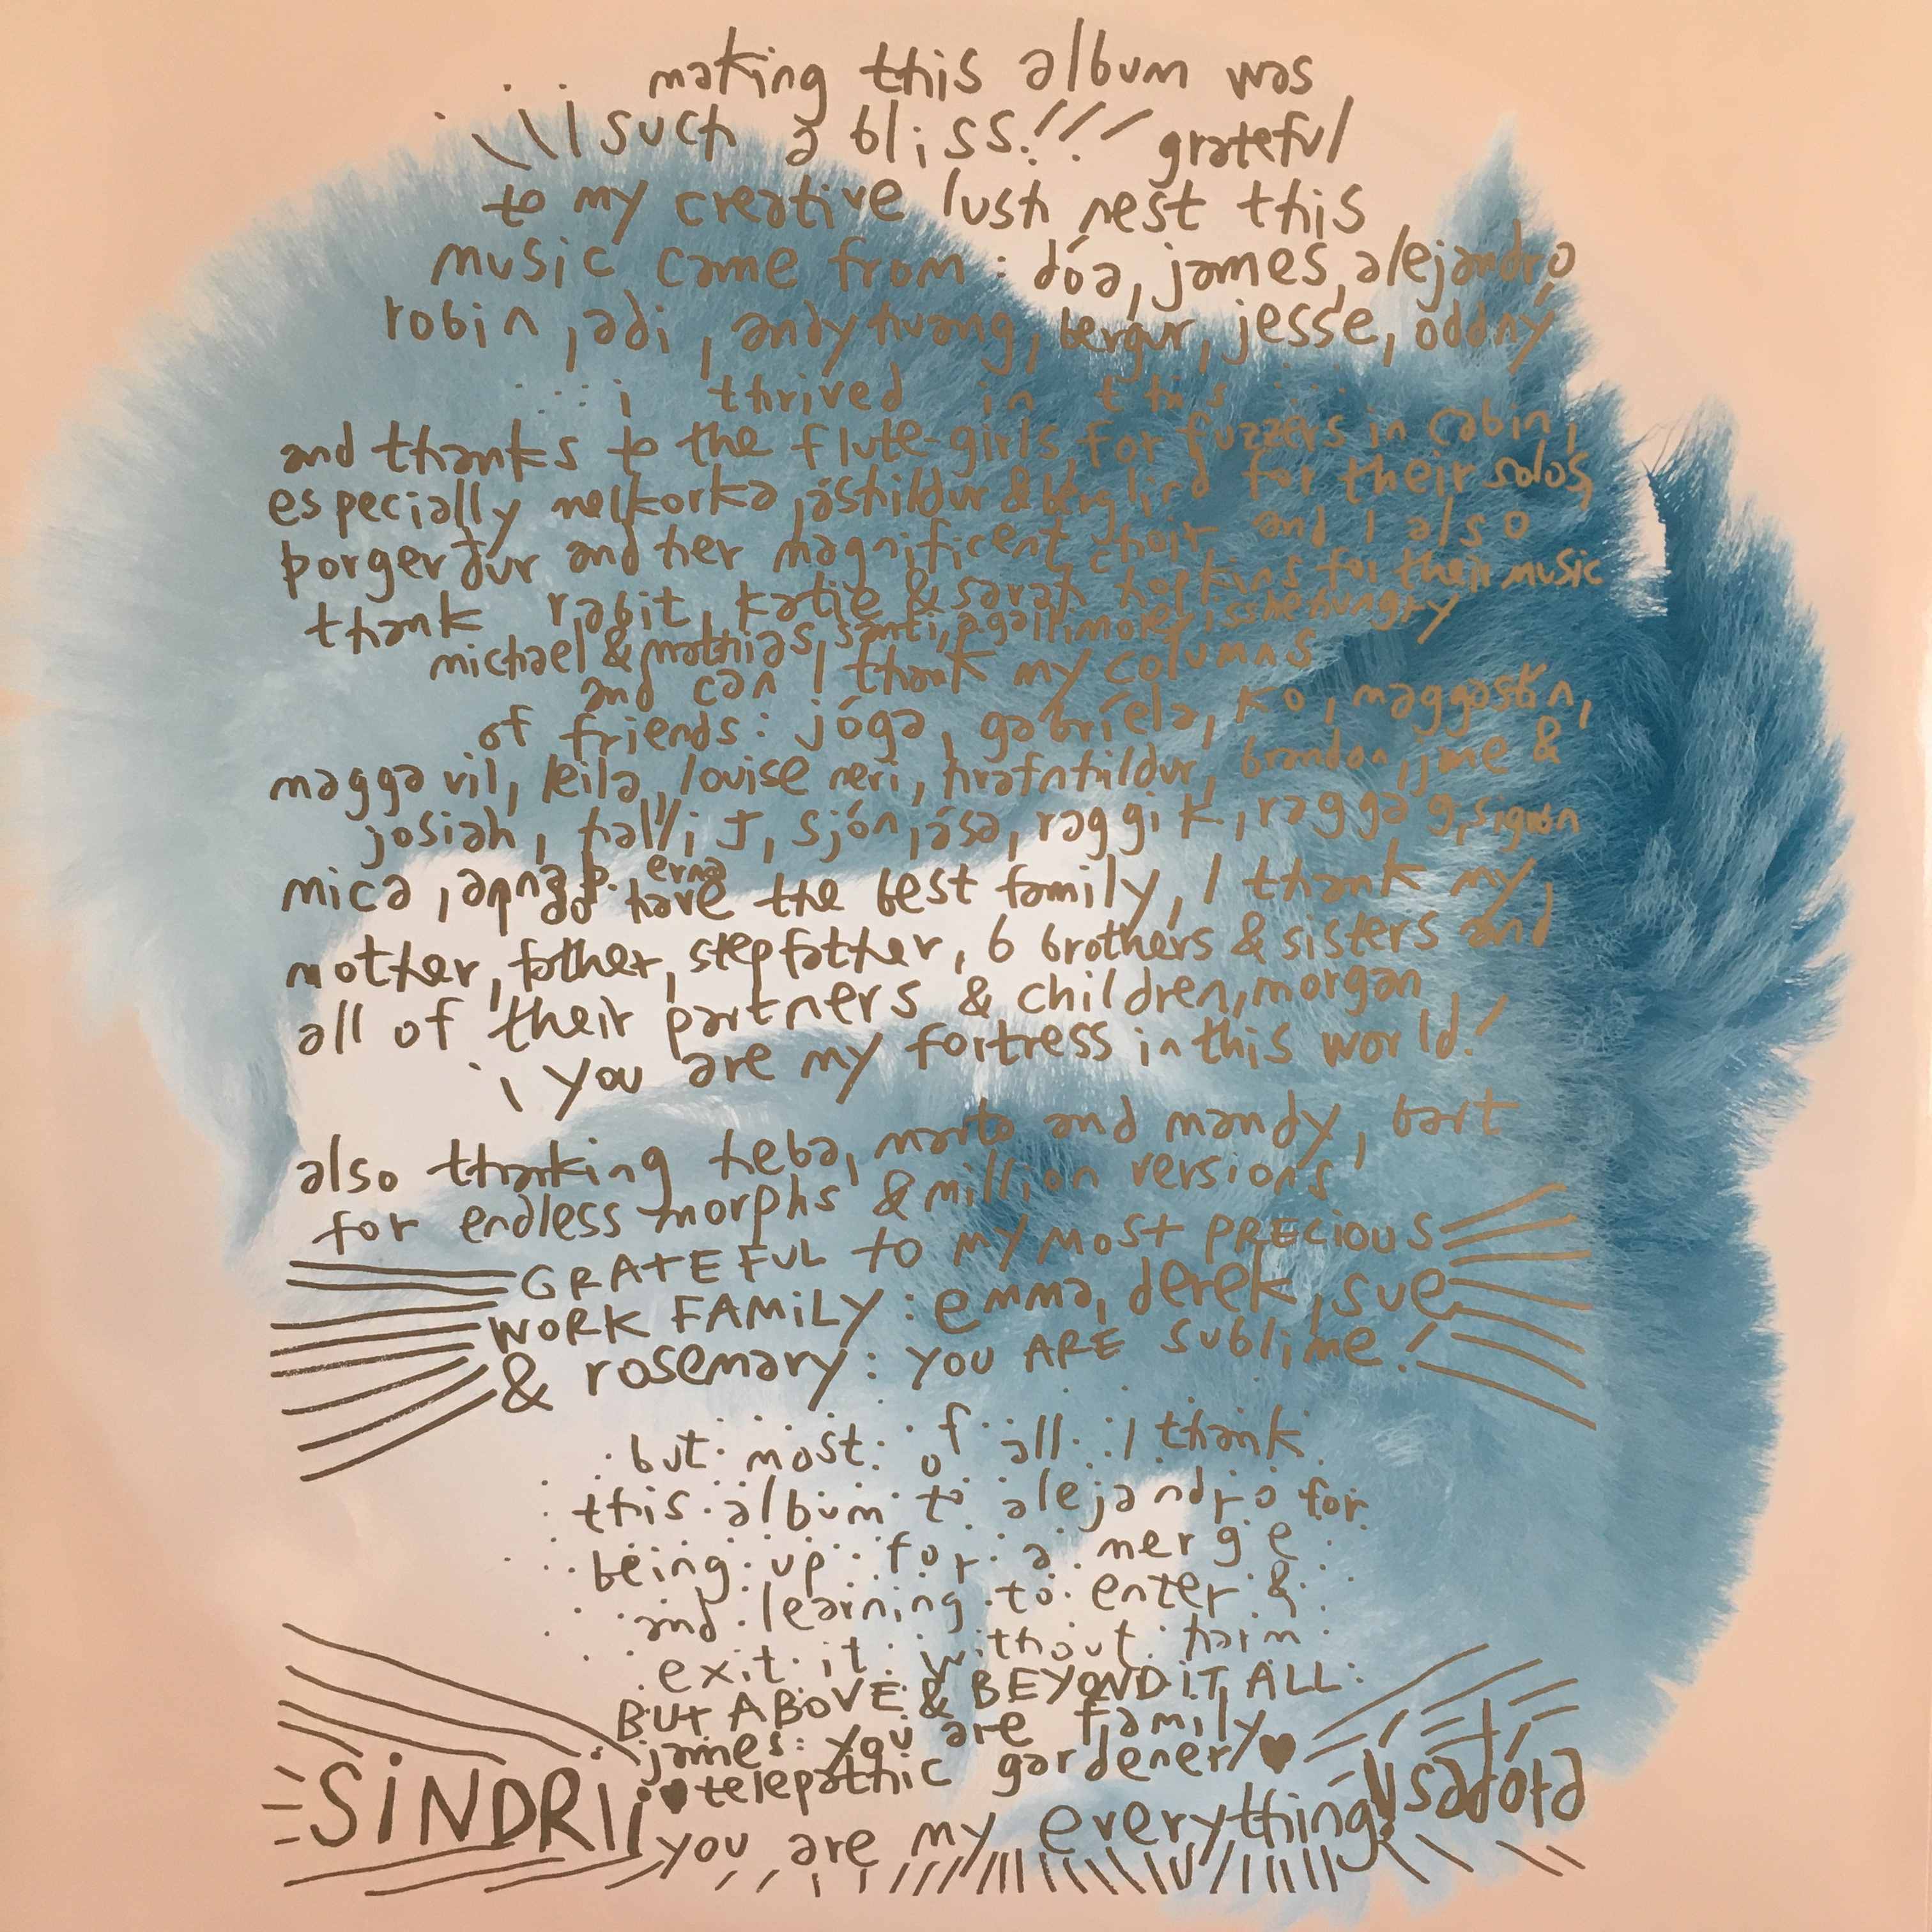 making this album was
such a bliss!!! grateful
to my creative lush nest this
music came from : dóa, james, alejandro
robin, adi, andy huang, bergur, jesse, oddný
i thrived in this
and thanks to the flute-girls for fuzzers in cabin,
especially melkorka, áshildur & berglind for their solos,
þorgerður and her magnificent choir and I also
thank rabit, katie & sarah hopkins for their music
michael & mathias, santi, a gallimore, isshehungry
and can I thank my columns
of friends: jóga, gabríela, ko,
magga vil, leila, louise neri, hrafnhildur, brandon, jane &
josiah, halli J, sjón, ása, raggi K, ragga g,
mica, erna
have the best family, I thank my
mother, father, stepfather, 6 brothers & sisters and
all of their partners & children, morgan
you are my fortress in this world!
also thanking heba, and mandy, bart
for endless morphs & million versions
GRATEFUL to MY MOST PRECIOUS
WORK FAMILY : emma, derek, sue
& rosemary: YOU ARE SUBLIME!
but most of all I thank
this album to alejandro for
being up for a merge
and learning to enter &
exit it without harm
BUT ABOVE & BEYOND IT ALL:
james: you are family
♥ telepathic gardener! ♥
SINDRI ísadóra
you are my everything!